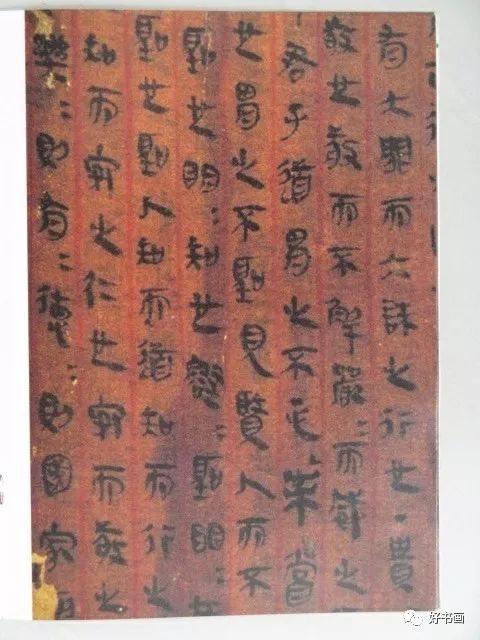 有大罪而大誅之行也·貴
敬也敬而不解嚴=而之
君子道胃之不·未嘗
也胃之不聖見賢人而不
聖也明=知也=聖明=
聖也聖人知而道知而行之
知而安之仁也安而敬之
樂=則有=德=則國家
好书画